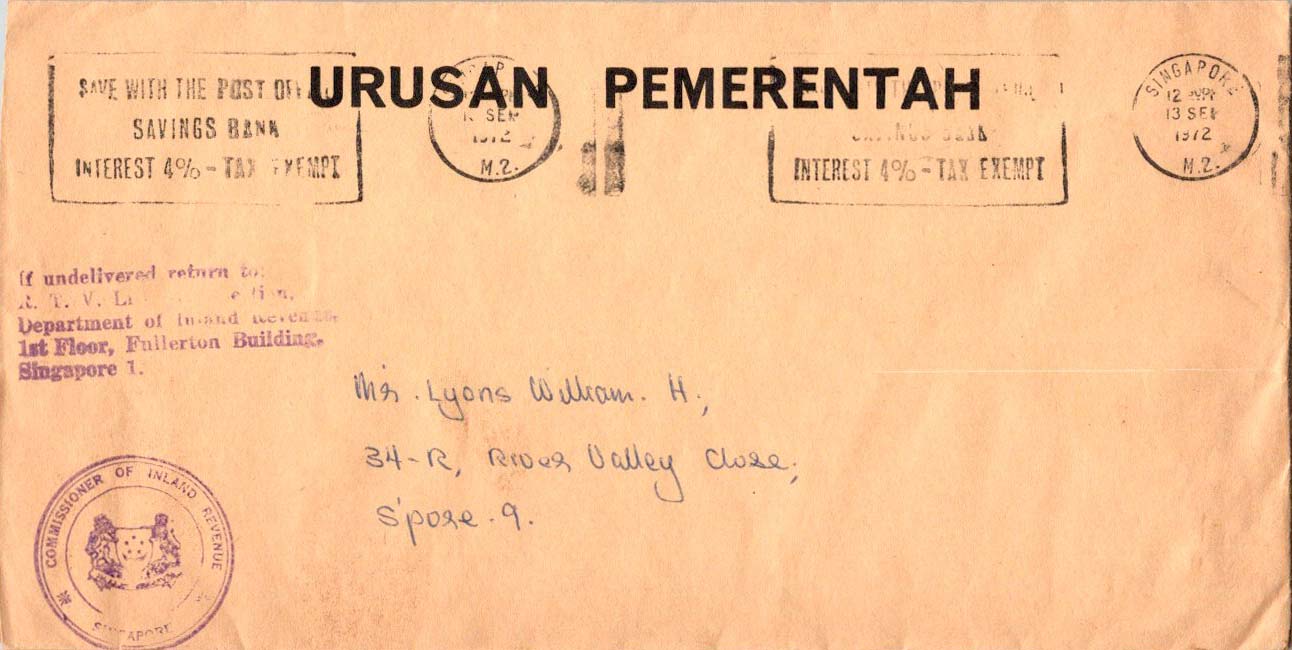 URUSAN PEMERENTAH
SAVE WITH THE POST
SAVINGS BANK
INTEREST 4% - TAX EXEMPT
SEP
1972
M.2.
INTEREST 4% - TAX EXEMPT
SINGAPORE
12
13 SEP
1972
M.2.
If undelivered return to:
R. T. V.
Department of Inland Revenue,
1st Floor, Fullerton Building,
Singapore 1.
Mr. Lyons William. H.,
34-R, River Valley Close,
S'pore. 9.
COMMISSIONER OF INLAND REVENUE
SINGAPORE